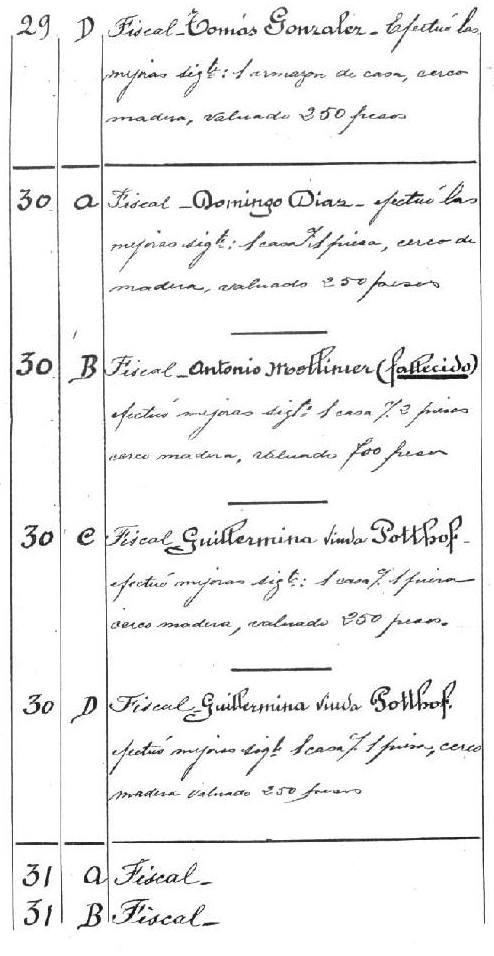 29 D Fiscal - Tomás Gonzalez - Efectuó las
mejoras sigte: 1 armazon de casa, cerco
madera, valuado 250 pesos
30 a Fiscal - Domingo Diaz - efectuó las
mejoras sigte: 1 casa 7. 1 pieza, cerco de
madera, valuado 250 pesos
30 B Fiscal - Antonio Mollinier (fallecido)
efectuó mejoras sigte 1 casa 7. 2 piezas
cerco madera, valuado 700 pesos
30 C Fiscal Guillermina viuda Potthof -
efectuó mejoras sigte: 1 casa 7. 1 pieza
cerco madera, valuado 250 pesos.
30 D Fiscal - Guillermina viuda Potthof.
efectuó mejoras sigte 1 casa 7. 1 pieza, cerco
madera valuado 250 pesos
31 a Fiscal -
31 B Fiscal -